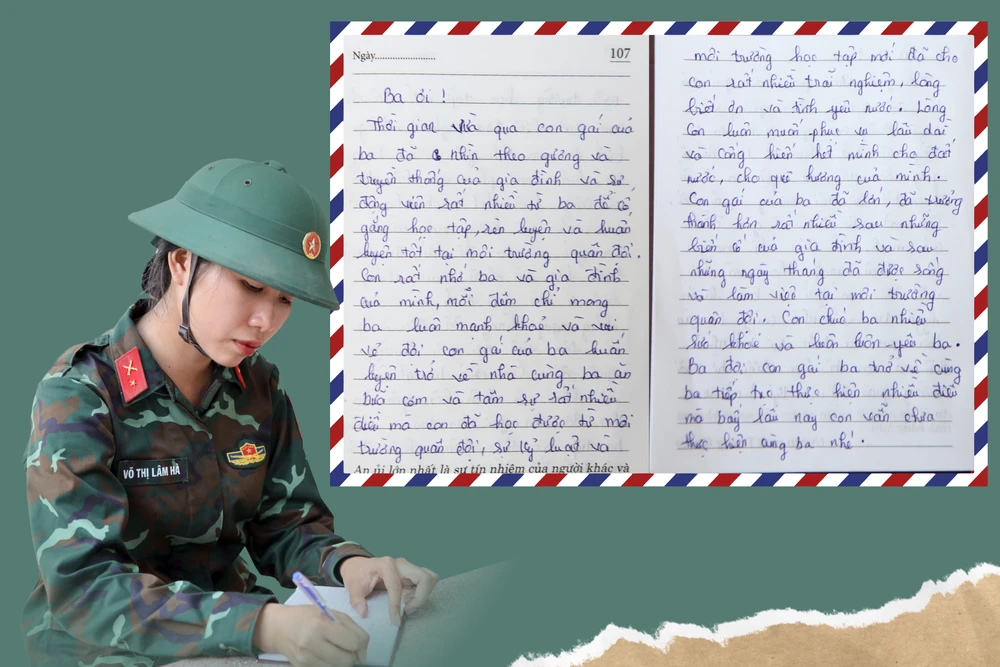 Ngày........................ 107
Ba ơi !
Thời gian vừa qua con gái của
ba đã nhìn theo gương và
truyền thống của gia đình và sự
động viên rất nhiều từ ba để cố
gắng học tập, rèn luyện và huấn
luyện tốt tại môi trường quân đội.
Con rất nhớ ba và gia đình
của mình, mỗi đêm chỉ mong
ba luôn mạnh khoẻ và vui
vẻ đợi con gái của ba huấn
luyện trở về nhà cùng ba ăn
bữa cơm và tâm sự rất nhiều
điều mà con đã học được từ môi
trường quân đội, sự kỷ luật và
An ủi lớn nhất là sự tín nhiệm của người khác và
môi trường học tập mới đã cho
con rất nhiều trải nghiệm, lòng
biết ơn và tình yêu nước. Lòng
con luôn muốn phục vụ lâu dài
và cống hiến hết mình cho đất
nước, cho quê hương của mình.
Con gái của ba đã lớn, đã trưởng
thành hơn rất nhiều sau những
biến cố của gia đình và sau
những ngày tháng đã được sống
và làm việc tại môi trường
quân đội. Con chúc ba nhiều
sức khoẻ và luôn luôn yêu ba.
Ba đợi con gái ba trở về cùng
ba tiếp tục thực hiện nhiều điều
mà bấy lâu nay con vẫn chưa
thực hiện cùng ba nhé.
VÕ THỊ LÂM HÀ